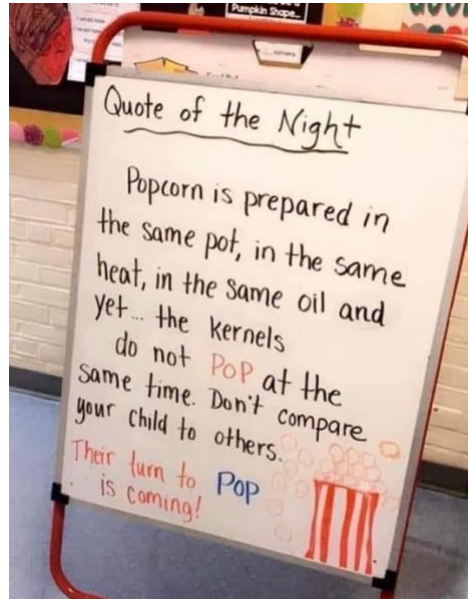 Pumpkin Shape...
Quote of the Night
Popcorn is prepared in
the same pot, in the same
heat, in the same oil and
yet... the kernels
do not POP at the
same time. Don't compare
your child to others.
Their turn to Pop
is coming!